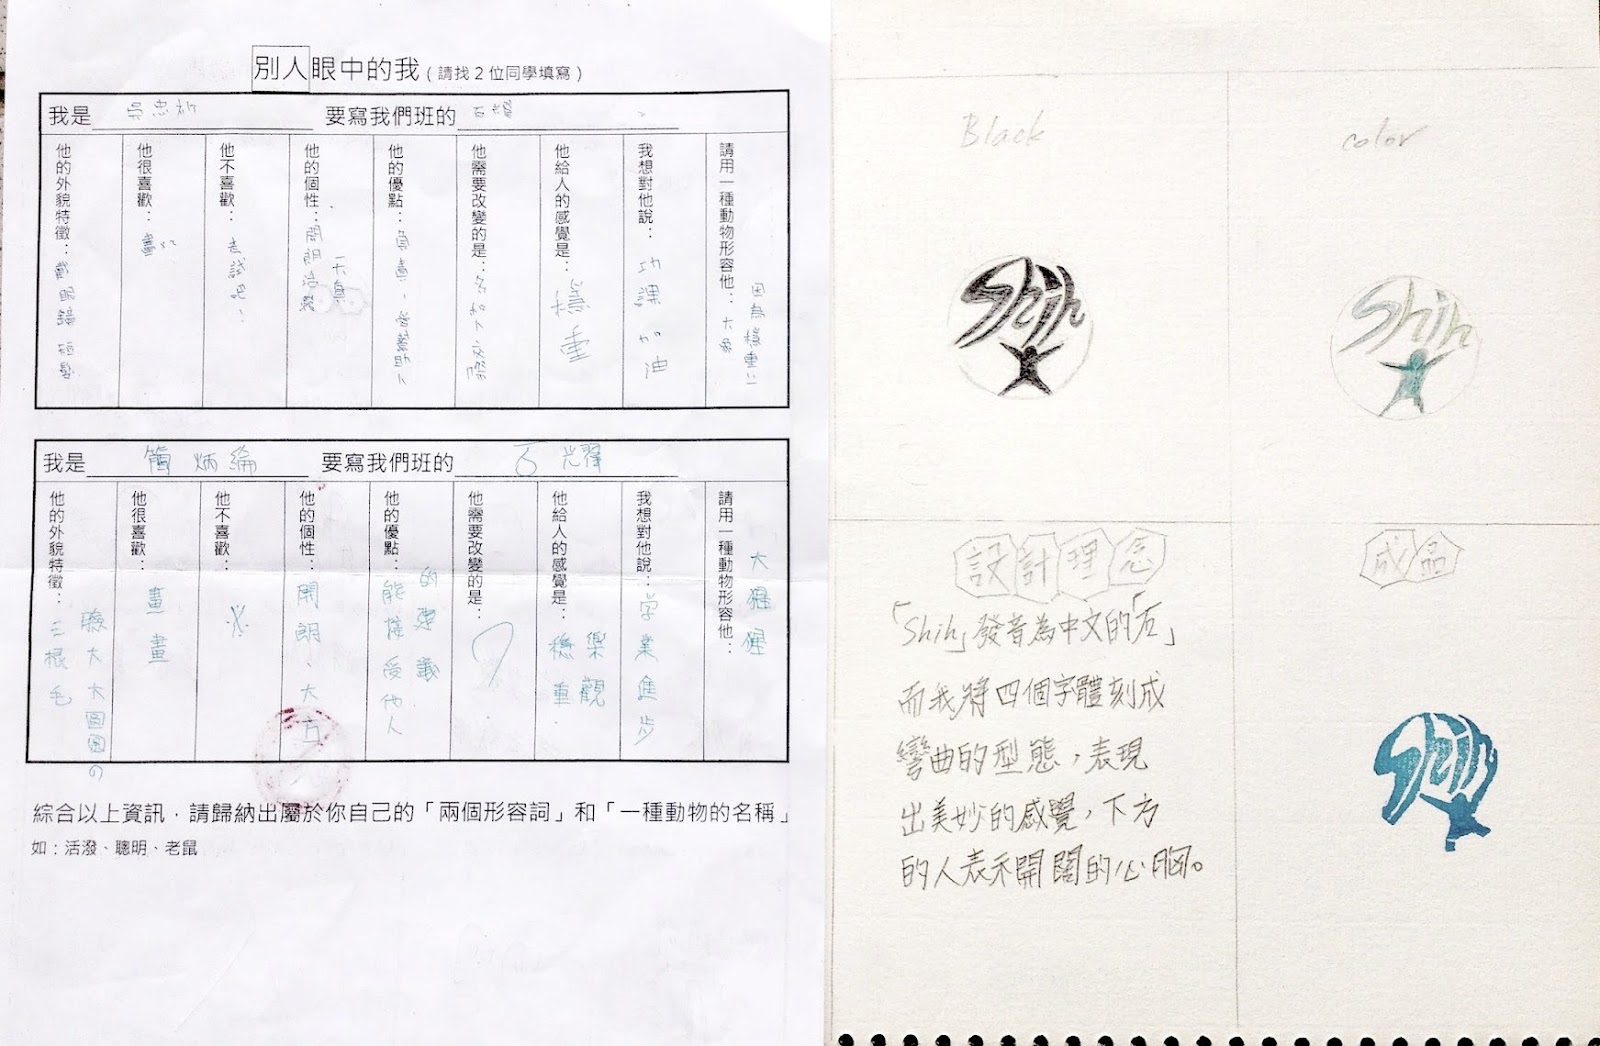 別人眼中的我(請找2位同學填寫)
我是 要寫我們班的
請用一種動物形容他:大象
因為穩重
我想對他說: 功課加油
他給人的感覺是: 穩重
他需要改變的是:
他的優點:負責、
他的個性:開朗
他不喜歡:
他很喜歡:畫
他的外貌特徵:戴眼鏡
我是 簡炳綸 要寫我們班的 石
請用一種動物形容他:
大猩猩
我想對他說:學業進步
他給人的感覺是: 樂觀
穩重
他需要改變的是: ?
他的優點:能接受他人
的建議
他的個性: 開朗、大方
他不喜歡:
他很喜歡: 畫畫
他的外貌特徵:三根毛
臉大大圓圓の
綜合以上資訊,請歸納出屬於你自己的「兩個形容詞」和「一種動物的名稱」
如:活潑、聰明、老鼠
Black
Shih
color
Shih
設計理念
「Shih」發音為中文的「石」
而我將四個字體刻成
彎曲的型態,表現
出美妙的感覺,下方
的人表示開闊的心胸。
成品
Shih